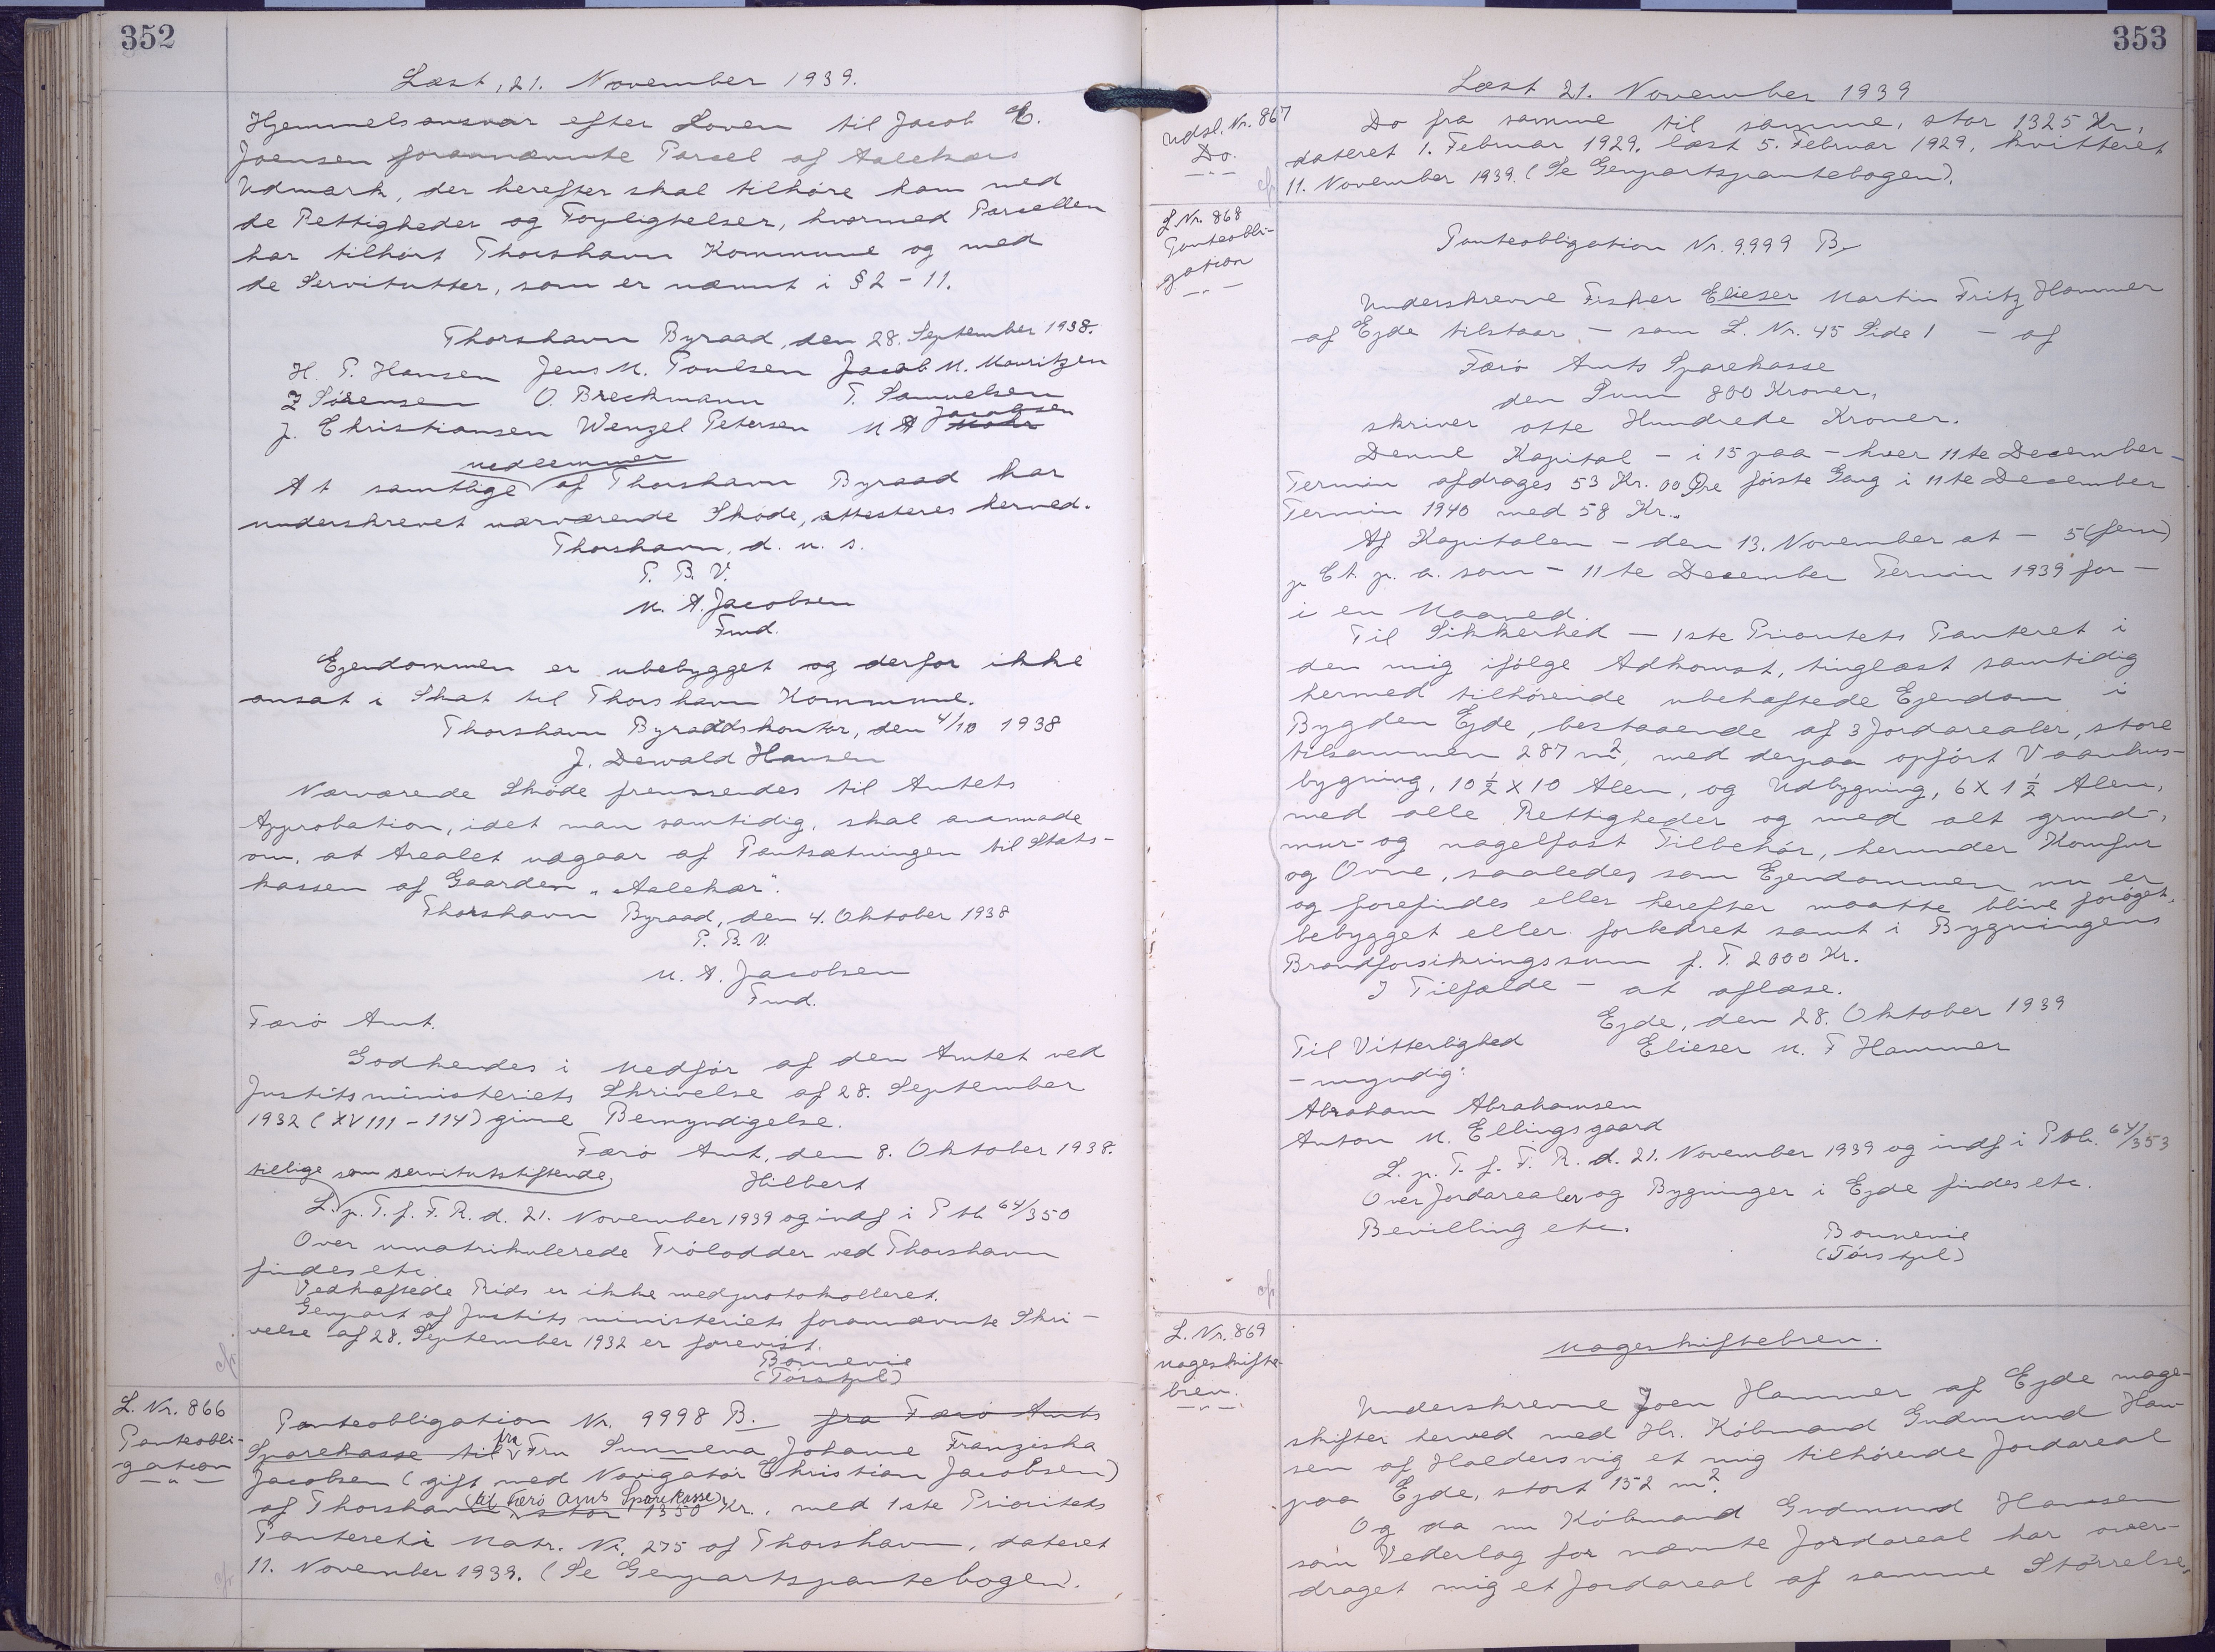 352
Læst, 21. November 1939.
Hjemmelsansvar efter Loven til Jacob E.
Joensen forannævnte Parcel af Aalekærs
Udmark, der herefter skal tilhøre ham med
de Rettigheder og Forpligtelser, hvormed Parcellen
har tilhørt Thorshavn Kommune og med
de Servitutter, som er nævnt i § 2 - 11.
Thorshavn Byraad, den 28. September 1938.
H. P. Hansen Jens M. Poulsen Jacob M. Mouritzen
Z Sørensen O. Breckmann T. Samuelsen
J. Christiansen Wenzel Petersen M A Mohr Jacobsen
medlemmer
At samtlige af Thorshavn Byraad har
underskrevet nærværende Skøde, attesteres herved.
Thorshavn, d. u. s.
P. B. V.
M. A. Jacobsen
Fmd.
Ejendommen er ubebygget og derfor ikke
ansat i Skat til Thorshavn Kommune.
Thorshavn Byraadskontor, den 4/10 1938
J. Dewald Hansen
Nærværende Skøde fremsendes til Amtets
Approbation, idet man samtidig, skal anmode
om, at Arealet udgaar af Pantsætningen til Stats-
kassen af Gaarden "Aalekær".
Thorshavn Byraad, den 4. Oktober 1938
P. B. V.
M. A. Jacobsen
Fmd.
Færø Amt.
Godkendes i Medfør af den Amtet ved
Justitsministeriets Skrivelse af 28. September
1932 (XVIII - 114) givne Bemyndigelse.
Færø Amt, den 8. Oktober 1938.
tillige som servitutstiftende, Hilbert
L. p. T. f. F. R. d. 21. November 1939 og indf i P tb 64/350
Over umatrikulerede Trølodder ved Thorshavn
findes etc.
Vedhæftede Rids er ikke medprotokolleret.
Genpart af Justitsministeriets forannævnte Skri-
velse af 28. September 1932 er forevist.
Bonnevie
(Tórshpl)
L. Nr. 866
Panteobli-
gation
Panteobligation Nr. 9998 B. fra Færø Amts
Sparekasse til fra Fru Sunneva Johanne Franziska
Jacobsen (gift med Navigatør Christian Jacobsen)
af Thorshavn (til Færø Amts Sparekasse) stor 1350 Kr., med 1ste Prioritets
Panteret i Matr. Nr. 275 af Thorshavn, dateret
11. November 1939. (Se Genpartspantebogen).
353
Læst 21. November 1939
Udsl. Nr. 867
Do.
Do fra samme til samme, stor 1325 Kr,
dateret 1. Februar 1929, læst 5. Februar 1929, kvitteret
11. November 1939. (Se Genpartspantebogen).
L Nr. 868
Panteobli-
gation
Panteobligation Nr. 9999 B,
Underskrevne Fisker Elieser Martin Fritz Hammer
af Ejde tilstaar - som L. Nr. 45 Side 1 - af
Færø Amts Sparekasse
den Sum 800 Kroner,
skriver otte Hundrede Kroner.
Denne Kapital - i 15 paa - hver 11te December -
Termin afdrages 53 Kr. 00 Øre første Gang i 11te December
Termin 1940 med 58 Kr..
Af Kapitalen - den 13. November at - 5 (fem)
p Ct. p. a. som - 11te December Termin 1939 for -
i en Maaned.
Til Sikkerhed - 1ste Prioritets Panteret i
den mig ifølge Adkomst, tinglæst samtidig
hermed tilhørende ubehæftede Ejendom i
Bygden Ejde, bestaaende af 3 Jordarealer, store
tilsammen 287 m², med derpaa opført Vaanhus-
bygning, 10 ½ x 10 Alen, og Udbygning, 6 x 1 ½ Alen,
med alle Rettigheder og med alt grund-,
mur- og nagelfast Tilbehør, herunder Komfur
og Ovne, saaledes som Ejendommen nu er
og forefindes eller herefter maatte blive forøget,
bebygget eller forbedret samt i Bygningens
Brandforsikringssum f. T. 2000 Kr.
I Tilfælde - at aflæse.
Ejde, den 28. Oktober 1939
Til Vitterlighed Elieser M. F Hammer
- myndig:
Abraham Abrahamsen
Anton M. Ellingsgaard
L. p. T. f. F. R. d. 21. November 1939 og indf i P tb. 64/353
Over Jordarealer og Bygninger i Ejde findes etc.
Bevilling etc.
Bonnevie
(Tórshpl)
L. Nr. 869
Mageskifte-
brev.
Mageskiftebrev.
Underskrevne Joen Hammer af Ejde mage-
skifter herved med Hr. Købmand Gudmund Han-
sen af Haldersvig et mig tilhørende Jordareal
paa Ejde, stort 152 m².
Og da nu Købmand Gudmund Hansen
som Vederlag for nævnte Jordareal har over-
draget mig et Jordareal af samme Størrelse,